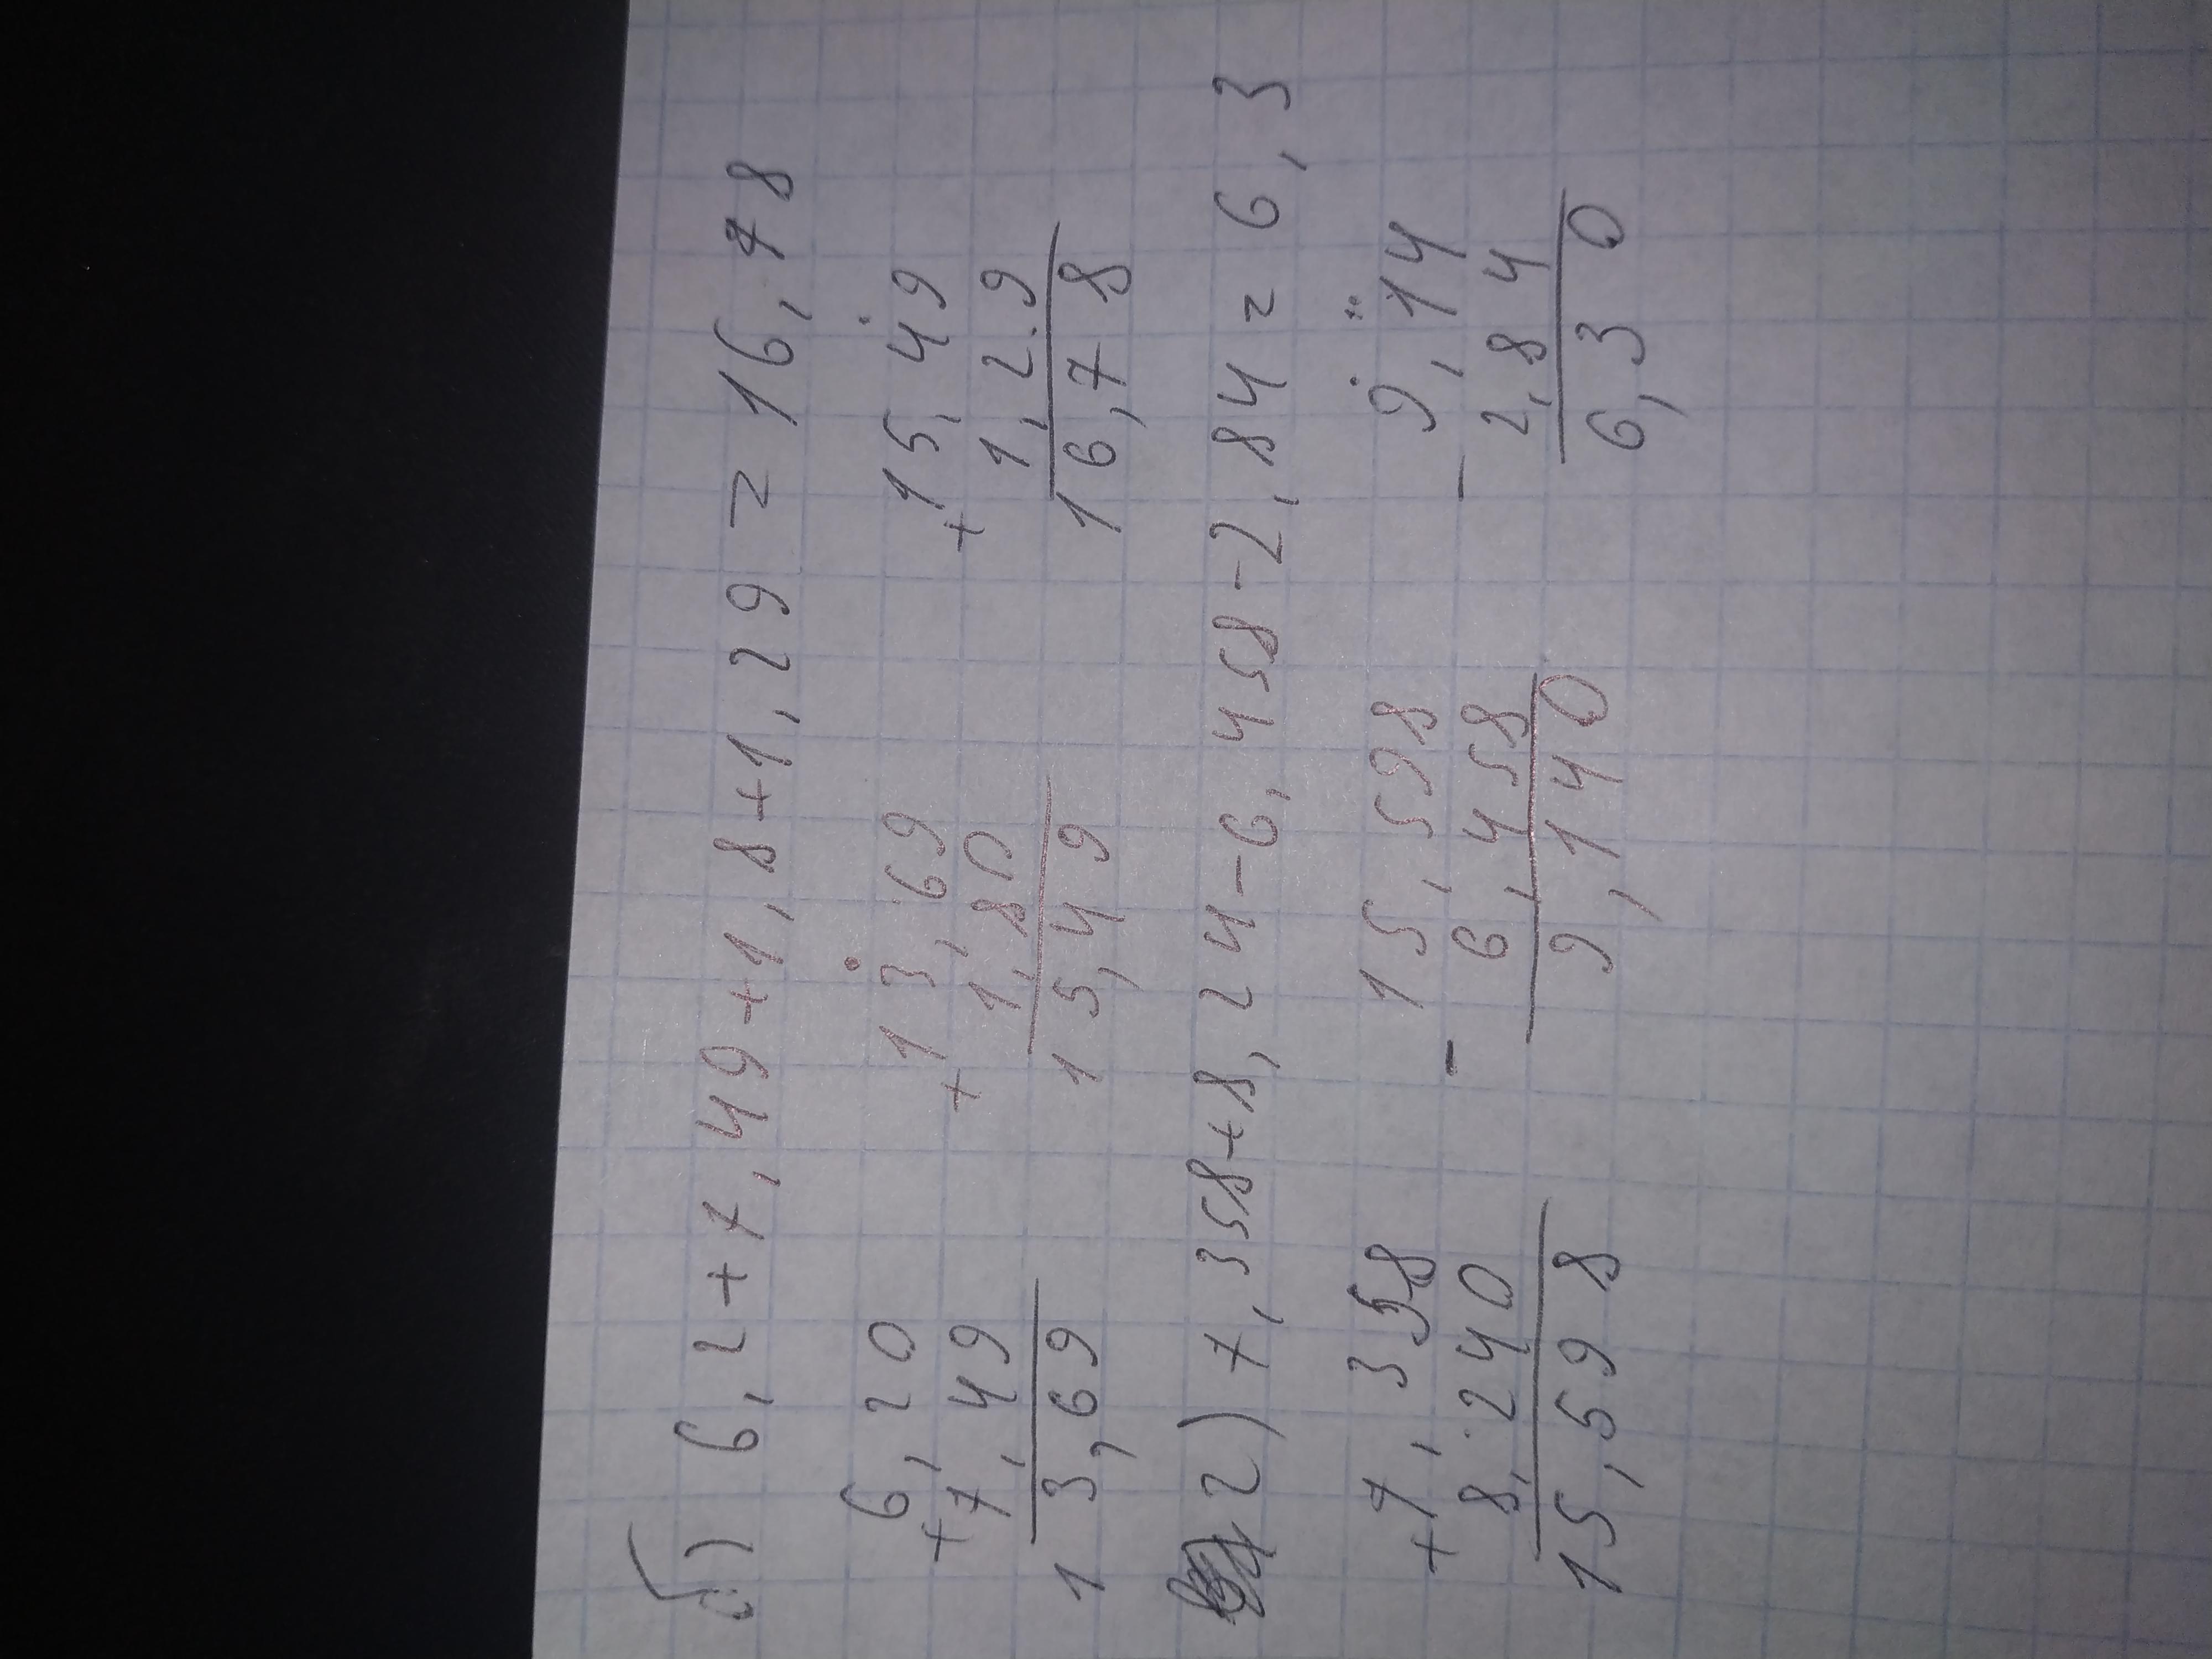 б) 6,2+7,49+1,8+1,29=16,78
6,20 13,69 15,49
+7,49 +1,80 +1,29
13,69 15,49 16,78
2) 7,358+8,24-6,458-2,84=6,3
7,358 15,598 9,14
+8,240 -6,458 -2,84
15,598 9,140 6,30